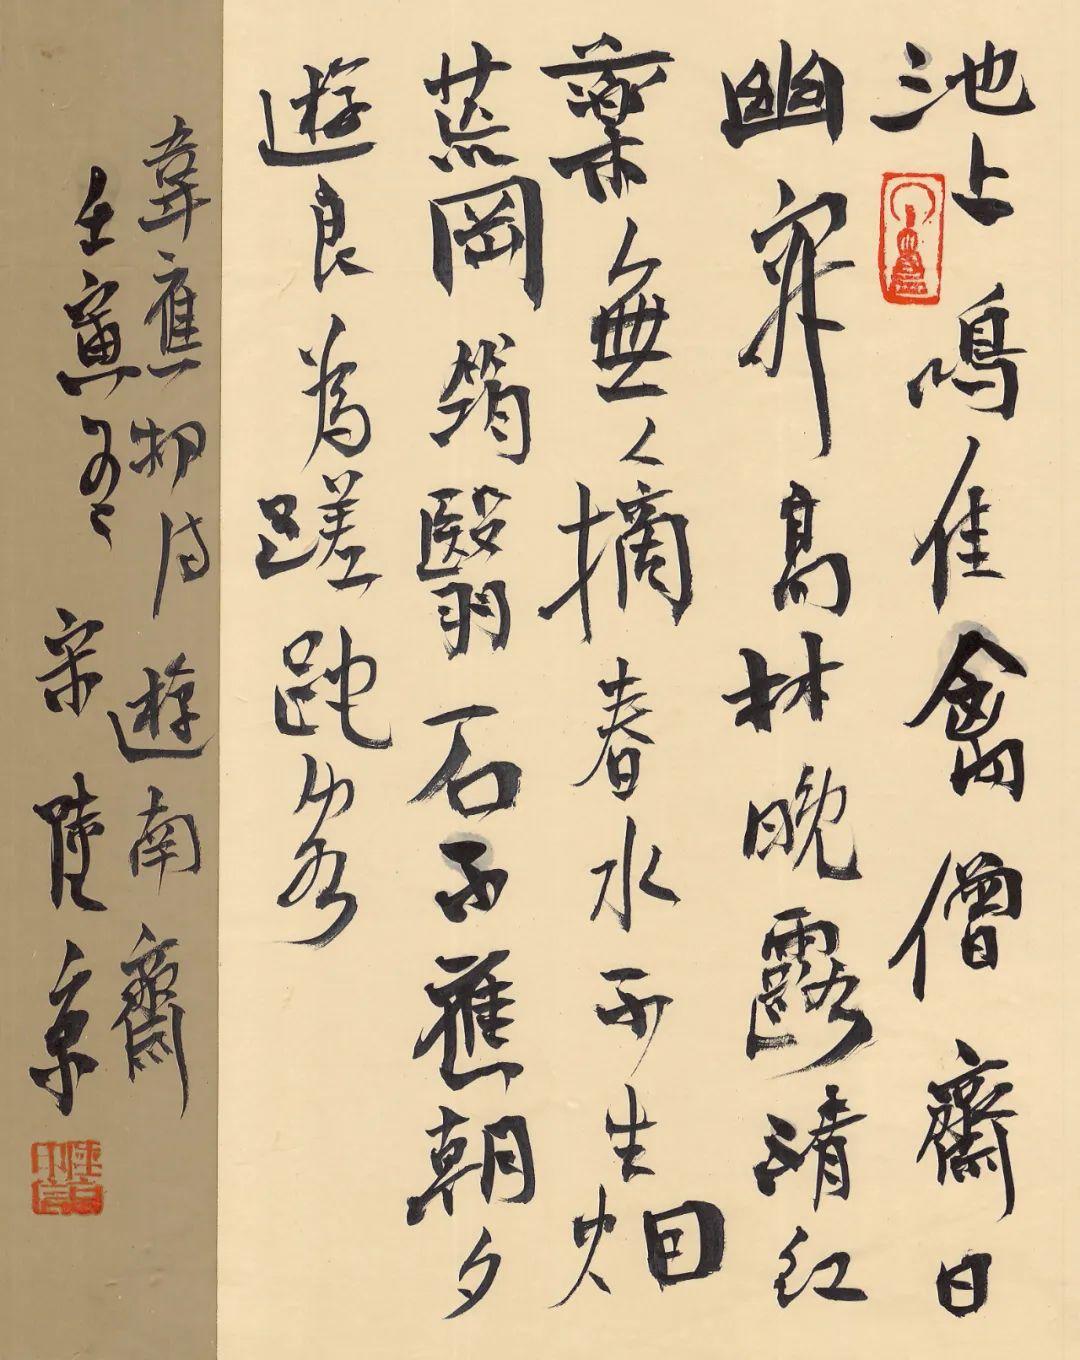 池上鳴佳禽僧齋日
幽寂高林晚露清紅
藥無人摘春水不生烟
荒岡筠翳石不應朝夕
遊良為蹉跎客
韋應物詩遊南齋
壬寅冬宋陸京